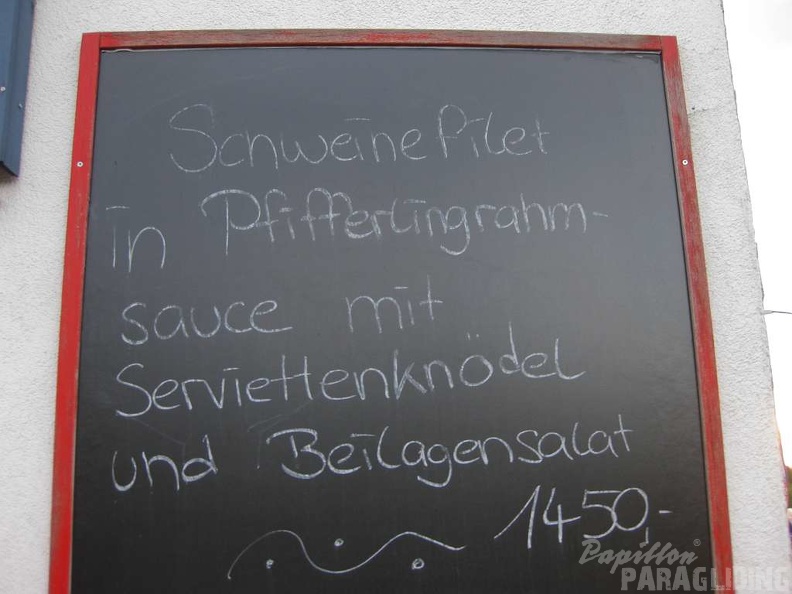 Schweinefilet
in Pfifferlingrahm-
sauce mit
Serviettenknödel
und Beilagensalat
1450,-
Papillon®
PARAGLIDING